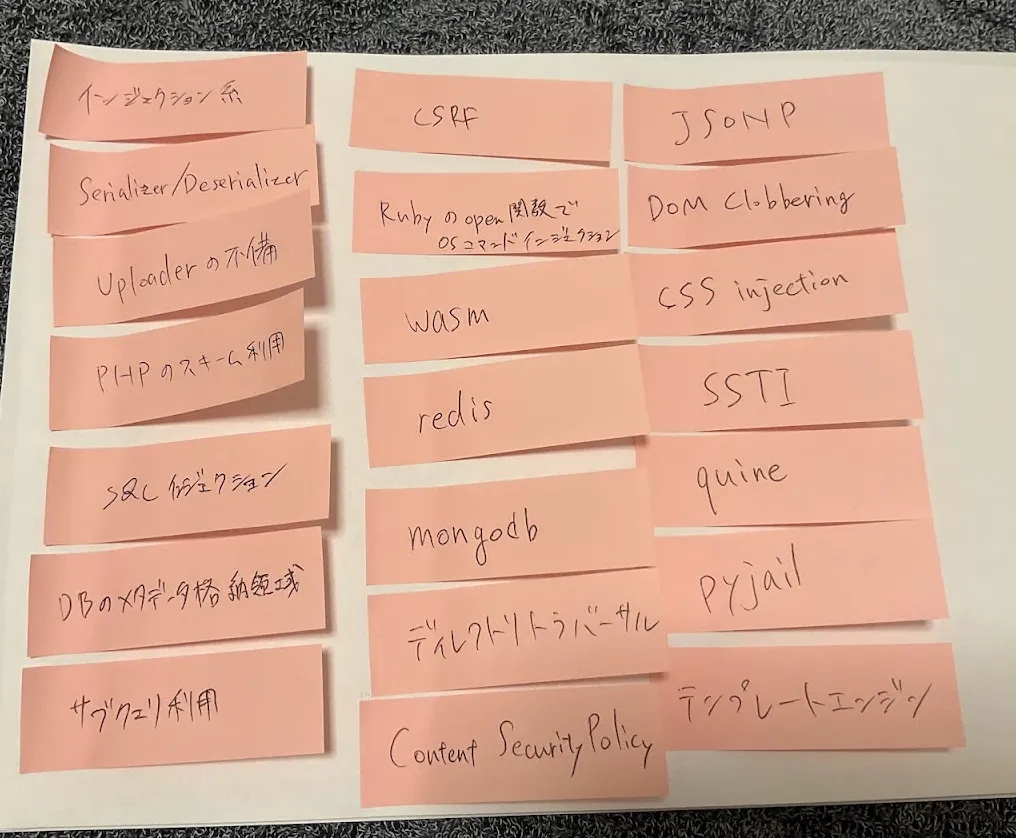 インジェクション系
Serializer/Deserializer
Uploaderの不備
PHPのスキーム利用
SQLインジェクション
DBのメタデータ格納領域
サブクエリ利用
CSRF
Rubyのopen関数で
OSコマンドインジェクション
wasm
redis
mongodb
ディレクトリトラバーサル
Content Security Policy
JSONP
DOM Clobbering
CSS injection
SSTI
quine
pyjail
テンプレートエンジン